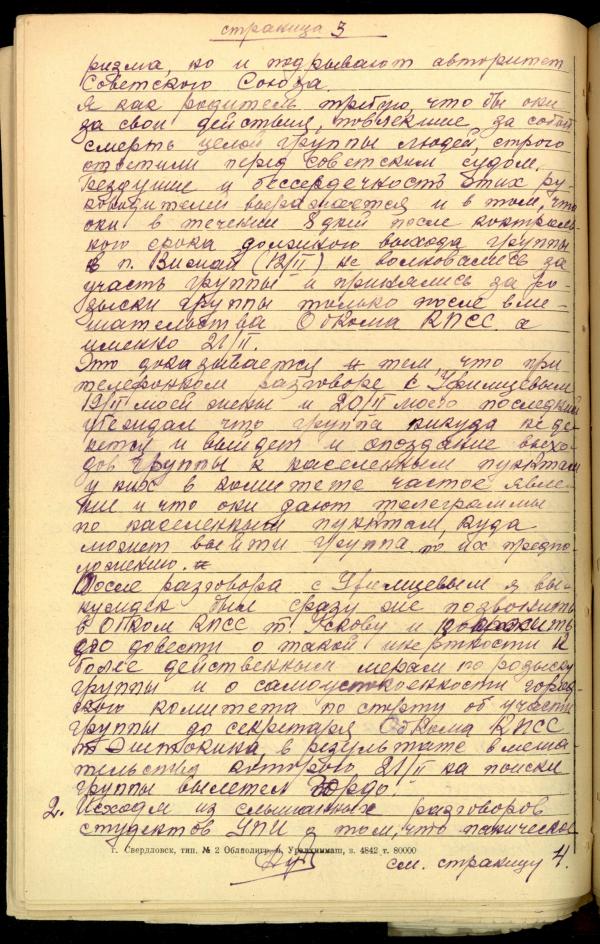 страница 3
ризма, но и подрывают авторитет
Советского Союза.
Я как родитель требую, что бы они
за свои действия, повлекшие за собой
смерть целой группы людей, строго
ответили перед Советским судом.
Бездушие и бессердечность этих ру-
ководителей выражается и в том, что
они в течении 8 дней после контроль-
ного срока должного выхода группы
в п. Вижай (12/II) не волновались за
участь группы и принялись за ро-
зыски группы только после вме-
шательства Обкома КПСС а
именно 21/II.
Это доказывается и тем, что при
телефонном разговоре с Уфимцевым
19/II моей жены и 20/II моего последний
убеждал что группа никуда не де-
нется и выйдет и опоздание выхо-
дов группы к населенным пунктам
у них в комитете частое явле-
ние и что они дают телеграммы
по населенным пунктам, куда
может выйти группа по их предпо-
ложению.
После разговора с Уфимцевым я вы-
нужден был сразу же позвонить
в Обком КПСС т. Ускову и
его довести о такой инертности к
более действенным мерам по розыску
группы и о самоуспокоенности город-
ского комитета по спорту об участи
группы до секретаря Обкома КПСС
в результате вмеша-
тельства которого 21/II на поиски
группы вылетел Гордо.
2. Исходя из слышанных разговоров
студентов УПИ о том, что паническое
г. Свердловск, тип. № 2 Облполигр. п. Уралхиммаш, з. 4842 т. 80000
см. страницу 4.